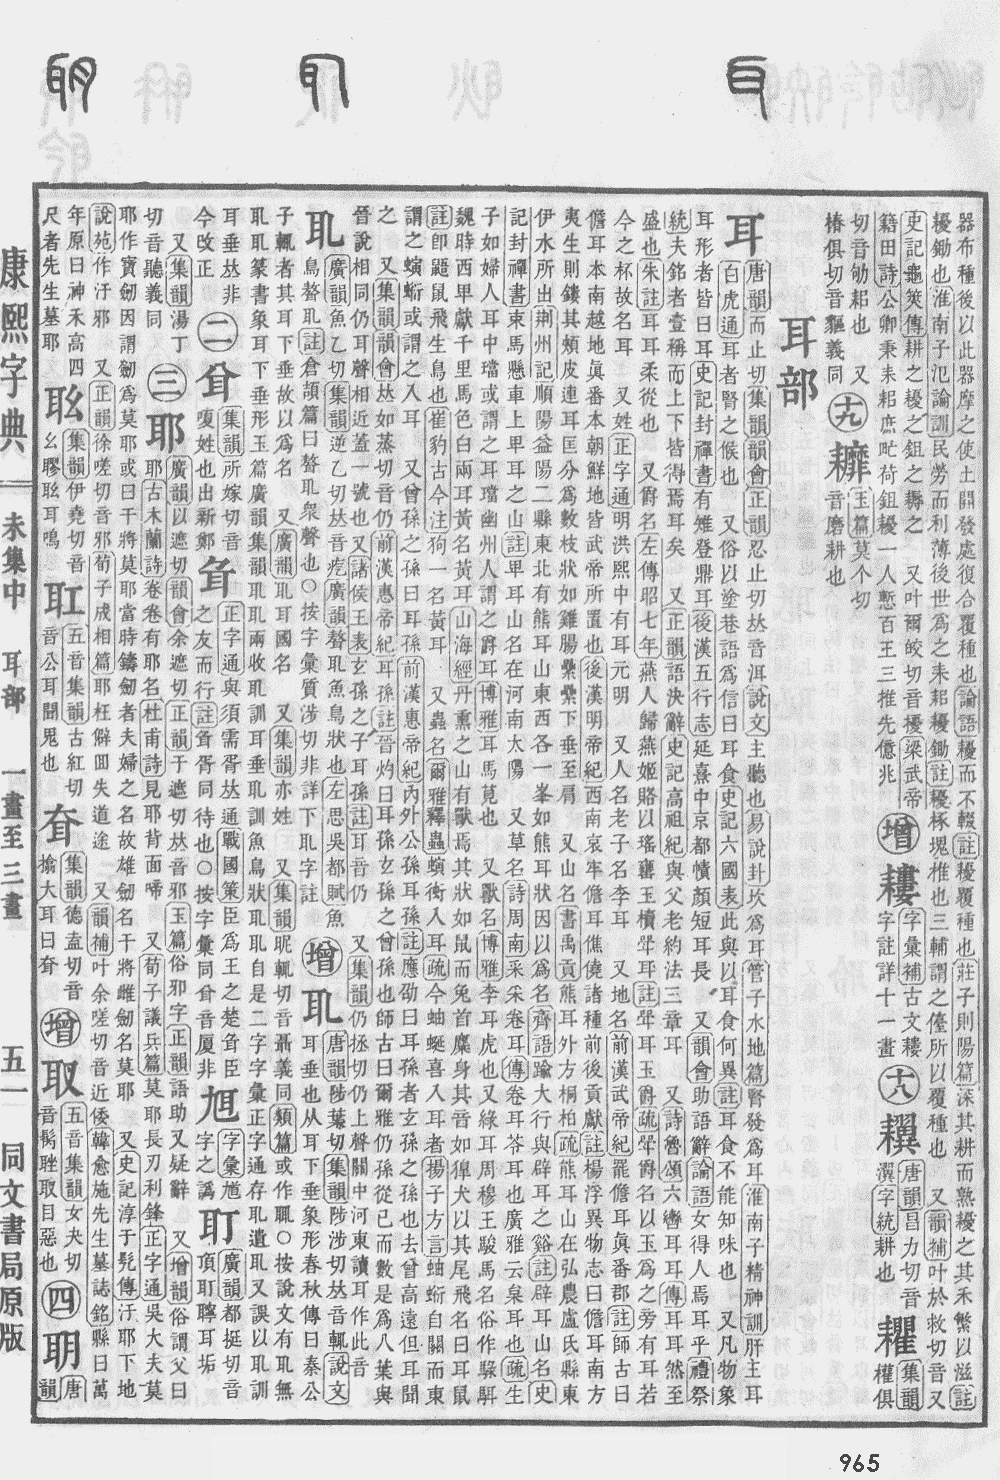 器布種後以此器摩之使土開發處復合覆種也論語耰而不輟註耰覆種也莊子則陽篇深其耕而熟耰之其禾繁以滋註
耰鋤也淮南子氾論訓民勞而利薄後世爲之耒耜耰鋤註耰椓塊椎也三輔謂之儓所以覆種也 又韻補叶於救切音又
史記龜筴傳耕之耰之鉏之耨之 又叶爾皎切音擾梁武帝
籍田詩公卿秉耒耜庶甿荷鉏耰一人慙百王三推先億兆
增
字彙補古文耬
字註詳十一畫
十八
唐韻昌力切音
字統耕也
集韻
權俱
切音劬耜也 又
椿俱切音軀義同
十九
玉篇莫个切
音磨耕也
耳部
耳
唐韻而止切集韻韻會正韻忍止切𠀤音洱說文主聽也易說卦坎爲耳管子水地篇腎發爲耳淮南子精神訓肝主耳
白虎通耳者腎之候也 又俗以塗巷語爲信曰耳食史記六國表此與以耳食何異註耳食不能知味也 又凡物象
耳形者皆曰耳史記封禪書有雉登鼎耳後漢五行志延熹中京都幘顏短耳長 又韻會助語辭論語女得人焉耳乎禮祭
統夫銘者壹稱而上下皆得焉耳矣 又正韻語決辭史記高祖紀與父老約法三章耳 又詩魯頌六轡耳耳傳耳耳然至
盛也朱註耳耳柔從也 又爵名左傳昭七年燕人歸燕姬賂以瑤罋玉櫝斝耳註斝耳玉爵疏斝爵名以玉爲之旁有耳若
今之杯故名耳 又姓正字通明洪熙中有耳元明 又人名老子名李耳 又地名前漢武帝紀罷儋耳眞番郡註師古曰
儋耳本南越地眞番本朝鮮地皆武帝所置也後漢明帝紀西南哀牢儋耳僬僥諸種前後貢獻註楊浮異物志曰儋耳南方
夷生則鏤其頰皮連耳匡分爲數枝狀如雞腸纍纍下垂至肩 又山名書禹貢熊耳外方桐柏疏熊耳山在弘農盧氏縣東
伊水所出荆州記順陽益陽二縣東北有熊耳山東西各一峯如熊耳狀因以爲名齊語踰大行與辟耳之谿註辟耳山名史
記封禪書束馬懸車上𤰞耳之山註𤰞耳山名在河南大陽 又草名詩周南采采卷耳傳卷耳苓耳也廣雅云枲耳也疏生
子如婦人耳中璫或謂之耳璫幽州人謂之爵耳博雅耳馬莧也 又獸名博雅李耳虎也又綠耳周穆王駿馬名俗作騄駬
魏時西𤰞獻千里馬色白兩耳黃名黃耳山海經丹熏之山有獸焉其狀如鼠而兔首麋身其音如獆犬以其尾飛名曰耳鼠
註卽鼯鼠飛生鳥也崔豹古今注狗一名黃耳 又蟲名爾雅釋蟲螾衝入耳疏今蚰蜒喜入耳者揚子方言蚰蜒自關而東
謂之螾𧊔或謂之入耳 又曾孫之孫曰耳孫前漢惠帝紀內外公孫耳孫註應劭曰耳孫者玄孫之子也去曾高遠但耳聞
之 又集韻韻會𠀤如蒸切音仍前漢惠帝紀耳孫註晉灼曰耳孫玄孫之曾孫也師古曰爾雅仍孫從己而數是爲八葉與
晉說相同仍耳聲相近蓋一號也又諸侯王表玄孫之子耳孫註耳音仍 又集韻仍拯切仍上聲關中河東讀耳作此音
耴
廣韻魚乙切集韻逆乙切𠀤音疙廣韻聲耴魚鳥狀也左思吳都賦魚
鳥聱耴註倉頡篇曰聱耴衆聲也○按字彙質涉切非詳下耴字註
增
耴
唐韻陟葉切集韻陟涉切𠀤音輒說文
耳垂也从耳下垂象形春秋傳曰秦公
子輒者其耳下垂故以爲名 又廣韻耴耳國名 又集韻亦姓 又集韻昵輒切音聶義同類篇或作𦕈○按說文有耴無
耴耴篆書象耳下垂形玉篇廣韻集韻耴耴兩收耴訓耳垂耴訓魚鳥狀耴耴自是二字字彙正字通存耴遺耴又誤以耴訓
耳垂𠀤非
今改正
二
集韻所嫁切音
嗄姓也出新鄭
正字通與須需胥𠀤通戰國策臣爲王之楚胥臣
之友而行註胥同待也○按字彙同音厦非
字彙尯
字之譌
耵
廣韻都挺切音
頂耵聹耳垢
又集韻湯丁
切音聽義同
三
耶
廣韻以遮切韻會余遮切正韻于遮切𠀤音邪玉篇俗邪字正韻語助又疑辭 又增韻俗謂父曰
耶古木蘭詩卷卷有耶名杜甫詩見耶背面啼 又荀子議兵篇莫耶長刃利鋒正字通吳大夫莫
耶作寶劒因謂劒爲莫耶或曰干將莫耶當時鑄劒者夫婦之名故雄劒名干將雌劒名莫耶 又史記淳于髡傳汙耶下地
說苑作汙邪 又正韻徐嗟切音邪荀子成相篇耶枉僻囬失道途 又韻補叶余嗟切音近倭韓愈施先生墓誌銘縣曰萬
年原曰神禾高四
尺者先生墓耶
集韻伊堯切音
幺𦕠耾耳鳴
五音集韻古紅切
音公耳聞鬼也
集韻德盍切音
耷
五音集韻女夬切
音𩭤
四
唐
韻
康熙字典 未集中 耳部 一畫至三畫 五一 同文書局原版
965